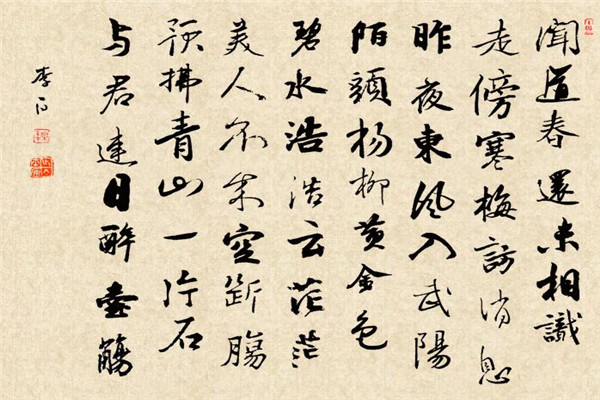 聞道春還未相識
走傍寒梅訪消息
昨夜東风入武陽
陌頭杨柳黄金色
碧水浩浩云茫茫
美人不来空断腸
预拂青山一片石
与君連日醉壺觴
李白